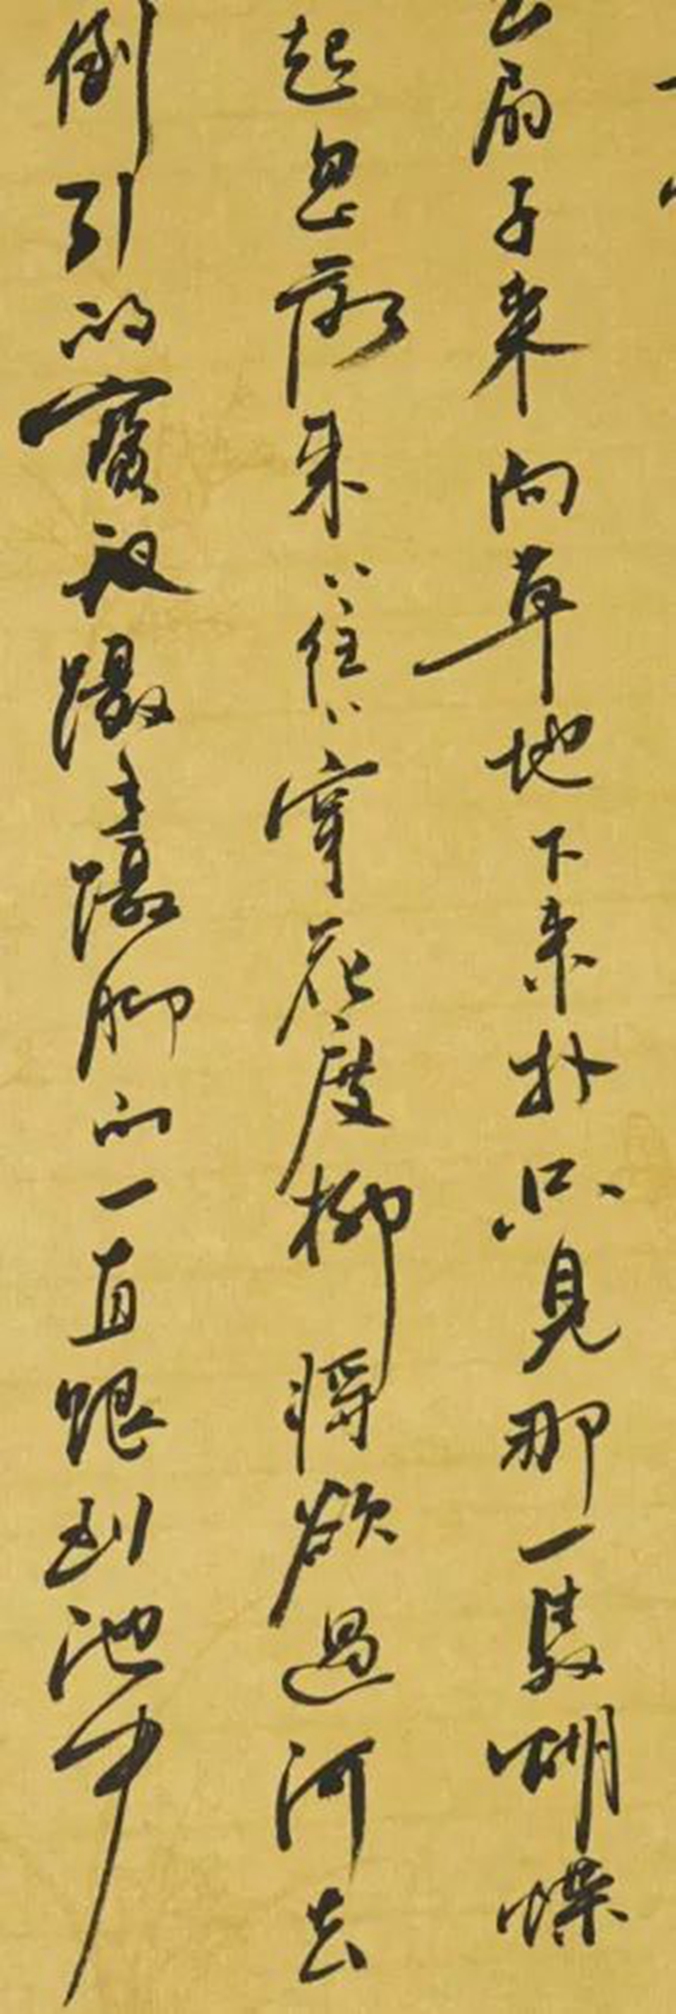 出扇子来向草地下来扑只見那一隻蝴蝶
起忽落来〻往〻穿花度柳將欲過河去
倒引的寳釵躡手躡脚的一直跟到池中